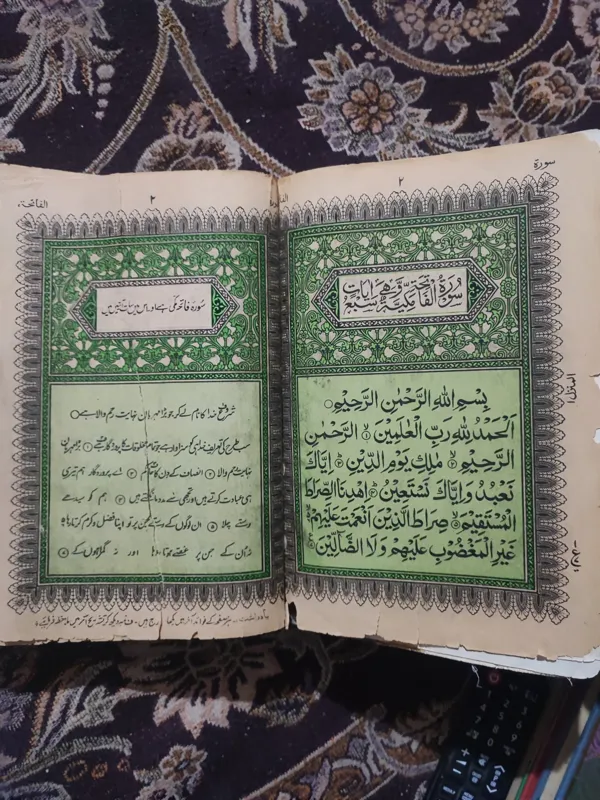 سورة
٢
سُوْرَةُ الْفَاتِحَةِ مَكِّيَّةٌ وَّهِيَ سَبْعُ اٰيَاتٍ
بِسْمِ اللّٰهِ الرَّحْمٰنِ الرَّحِيْمِ
اَلْحَمْدُ لِلّٰهِ رَبِّ الْعٰلَمِيْنَ ۝١ الرَّحْمٰنِ
الرَّحِيْمِ ۝٢ مٰلِكِ يَوْمِ الدِّيْنِ ۝٣ اِيَّاكَ
نَعْبُدُ وَاِيَّاكَ نَسْتَعِيْنُ ۝٤ اِهْدِنَا الصِّرَاطَ
الْمُسْتَقِيْمَ ۝٥ صِرَاطَ الَّذِيْنَ اَنْعَمْتَ عَلَيْهِمْ
غَيْرِ الْمَغْضُوْبِ عَلَيْهِمْ وَلَا الضَّآلِّيْنَ
المنزل ١
٢
الفاتحة
سُورہ فاتحہ مکی ہے اور اس میں سات آیتیں ہیں
شروع خدا کا نام لے کر جو بڑا مہربان نہایت رحم والا ہے
سب طرح کی تعریف خدا ہی کو سزاوار ہے جو تمام مخلوقات کا پروردگار ہے ۝١ بڑا مہربان
نہایت رحم والا ۝٢ انصاف کے دن کا حاکم ۝٣ اے پروردگار ہم تیری
ہی عبادت کرتے ہیں اور تجھی سے مدد مانگتے ہیں ۝٤ ہم کو سیدھے
رستے چلا ۝٥ ان لوگوں کے رستے جن پر تو اپنا فضل و کرم کرتا رہا
نہ اُن کے جن پر غصّے ہوتا رہا اور نہ گمراہوں کے